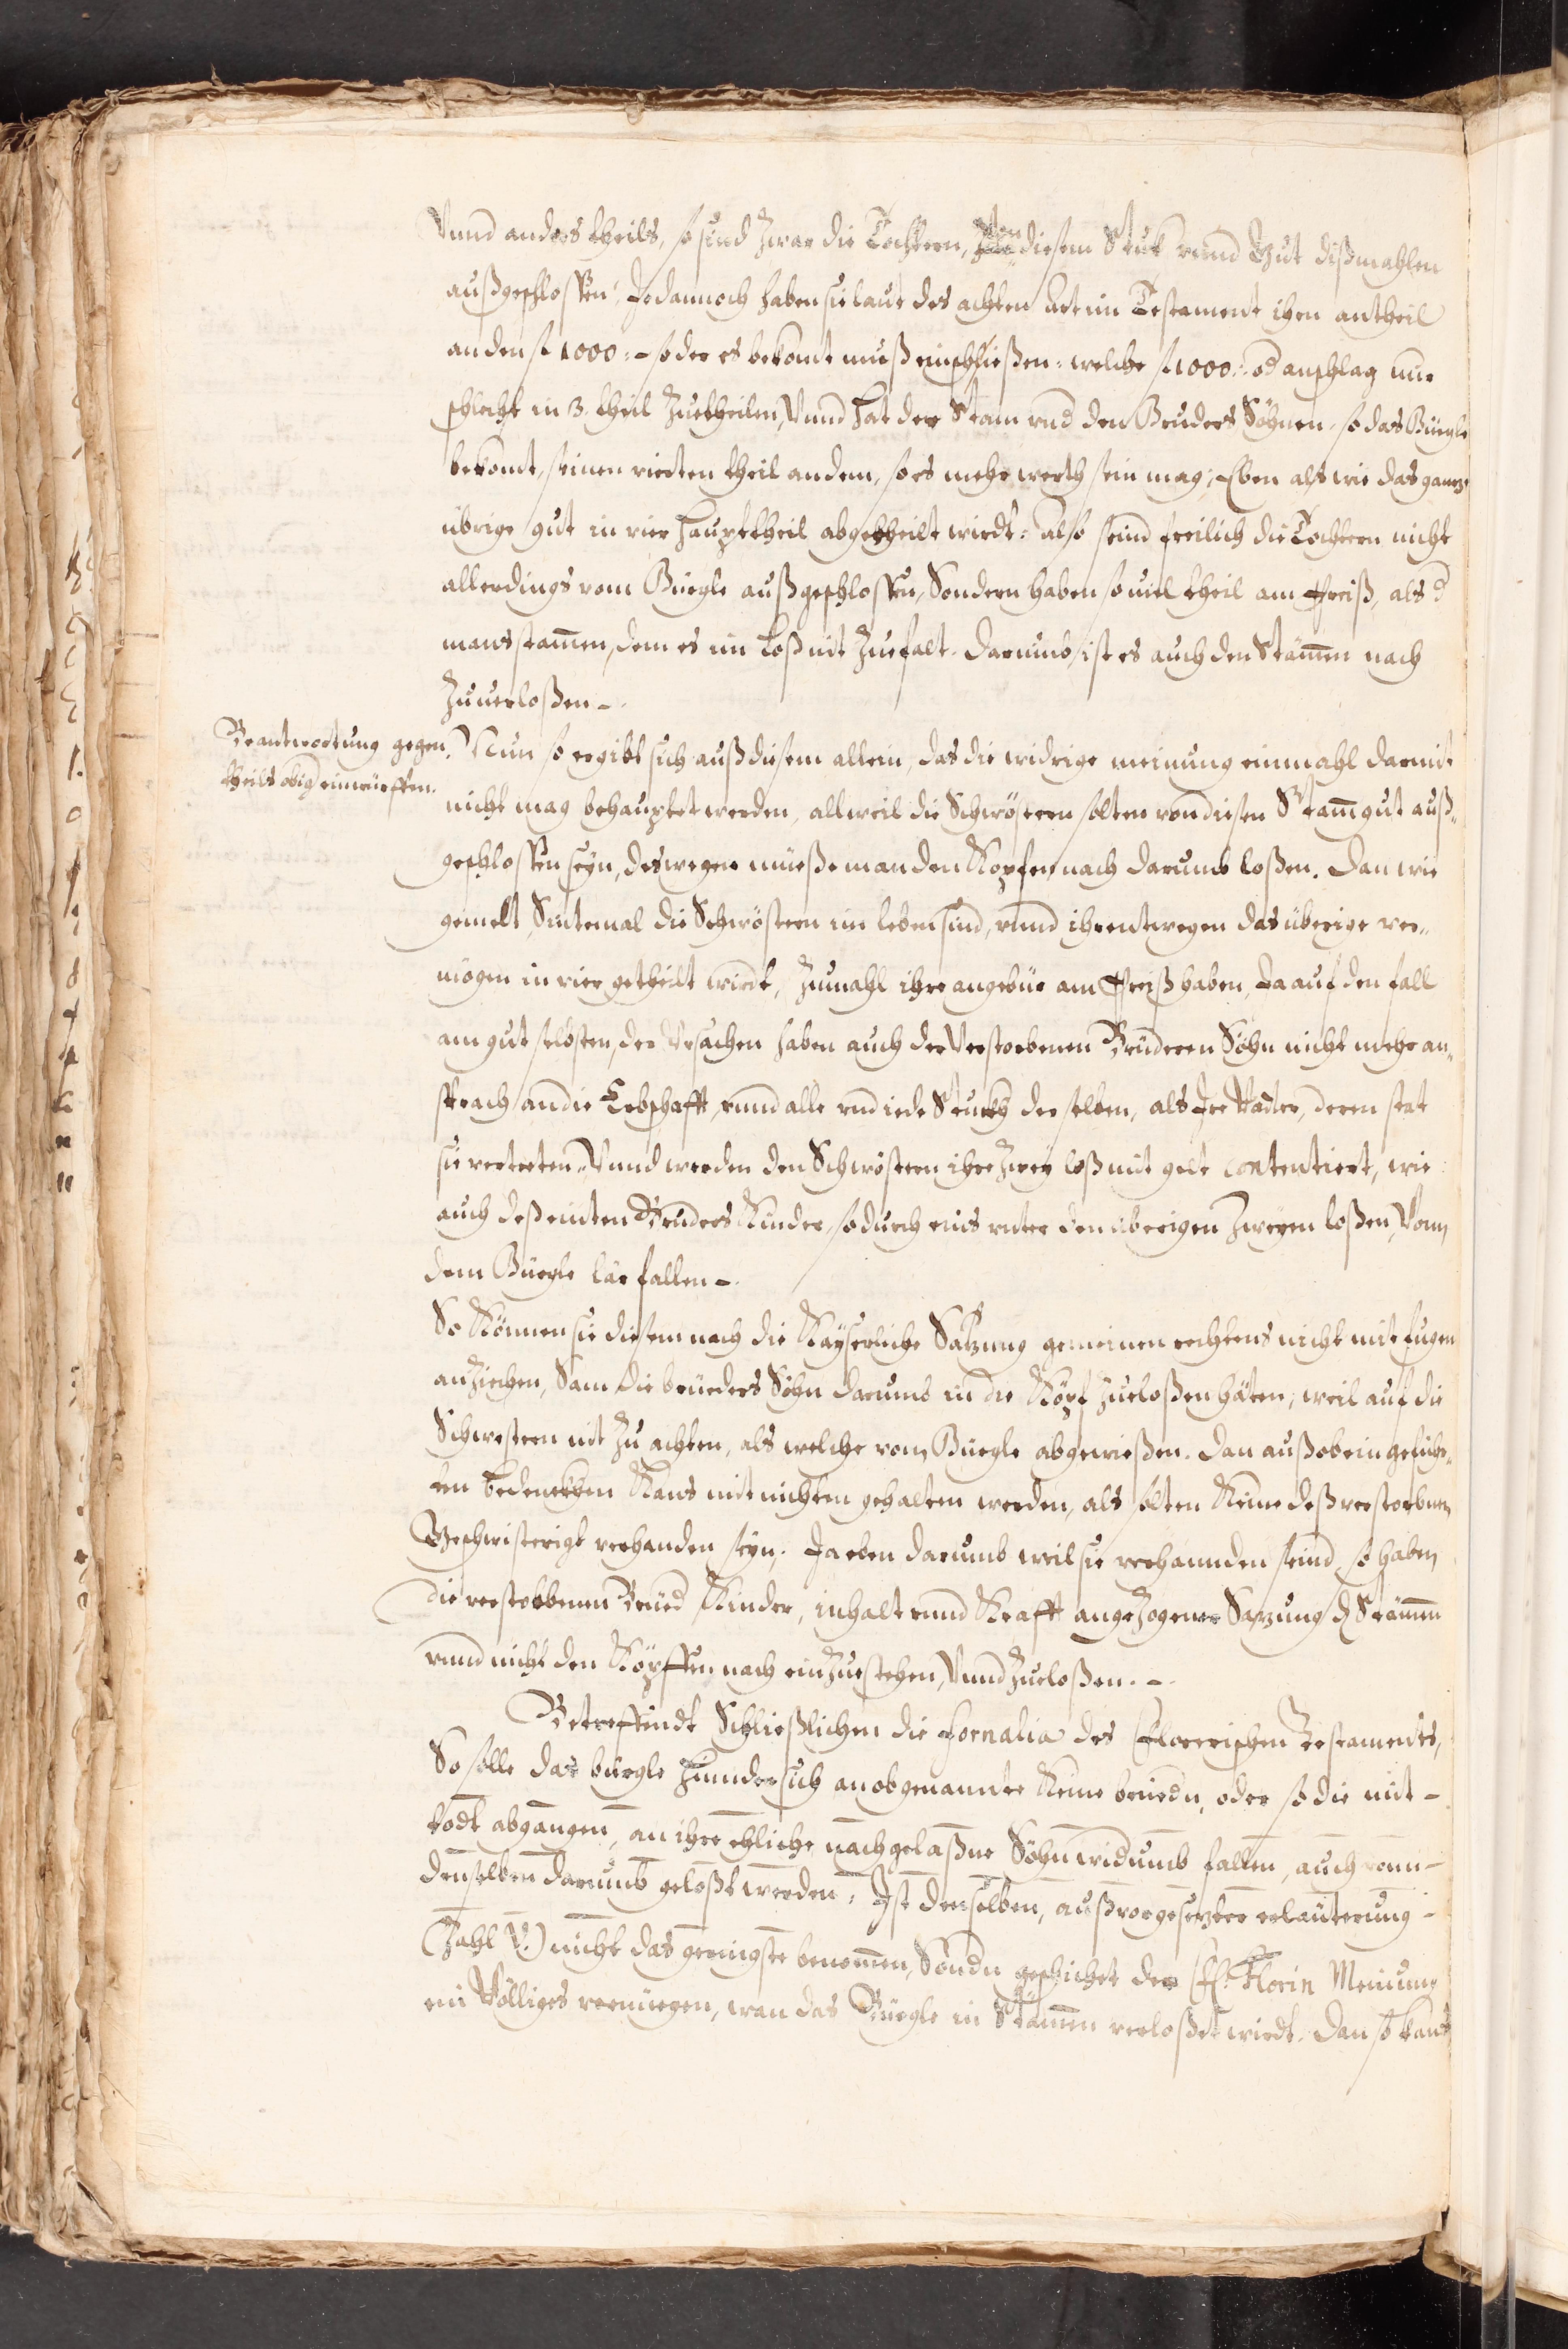 Vnnd anders theils, so sind zwar die Töchtern, von diesem Stuk vnnd Gut dißmahlen
außgeschlossen, Jedannoch haben sie laut des achten Art im Testament ihen antheil
an den fl 1000:- so der es bekomt muß einschießen: welche fl 1000:- od anschlag nur
schlecht in 3. theil Zuetheilen, Vnnd hat der Stam vnd den Bruders Söhnen, so das Bürgle
bekomt, seinen vierten theil an dem, so es mehr werth sein mag, Eben als wie das ganze
übrige gut in vier haupttheil abgetheilt wirdt: also seind freilich die Töchtern nicht
allerdings vom Bürgle außgeschlossen, Sondern haben so viel theil am Preiß, als d
mansstammen, dem es im Loß nit Zuefalt. Darumb ist es auch den Stämmen nach
Zuuerloßen -.
Beantwortung gegen-
theils obig einwürffen.
Nun so ergibt sich auß diesem allein, das die widrige meinung einmahl darmit
nicht mag behauptet werden, allweil die Schwöstern solten von diesen Stamgut auß-
geschlossen seyn, deswegen müesse man den Köpfen nach darumb loßen. Dan wie
gemelt, Sintemal die Schwöstern im leben sind, vnnd ihrentwegen das überige ver-
mögen in vier getheilt wirdt, Zumahl ihre angebür am Preiß haben, Ja auf den fall
am gut selbsten, der Vrsachen haben auch der Verstorbenen Brüderen Söhn nicht mehr an-
sprach an die Erbschafft, vnnd alle vnd iede Stuckh derselben, als Jre Vädter, deren stat
sie vertreten, Vnnd werden den Schwöstern ihre Zwey loß mit gelt contentiert, wie
auch deß einten Bruders Kinder, so durch eins vnter den überigen Zweyen loßen, Vom
dem Bürgle lär fallen -.
So Können sie diesem nach die Kayserliche Satzung gemeinen rechtens nicht mit fugen
anziehen, Sam die brüeders Söhn darumb in die Köpf Zueloßen häten, weil auf die
Schwestern nit Zu achten, als welche vom Bürgle abgewießen. Dan auß obeingeführ-
ten bedencken Kans mit nichten gehalten werden, als solten Keine deß verstorbnen
Geschwisterigt verhanden seyn. Ja eben darumb weil sie verhannden seind, so haben
die verstorbenen Brüed Kinder, inhalt vnnd Krafft angezogener Sazung d Stämmen
vnnd nicht den Köpffen nach einzuestehen, Vnnd Zueloßen. -.
Betreffendt Schließlichen die Fornalia des Florerischen Testaments,
So solle das bürgle hinder sich an obgenannte Keine brüedn, oder so die mit -
todt abgangen, an ihre ehliche nachgelaßne Söhn widumb fallen, auch vonn -
denselben darumb geloßt werden, Ist derselben, auß vorgesezter erläuterung -
(Zahl V.) nicht das geringste benommen, Sondn geschichet der Fl. Florin Meinung
ein Völliges vernüegen, wan das Bürgle in Stämmen verloßet wirdt. Dan so kans